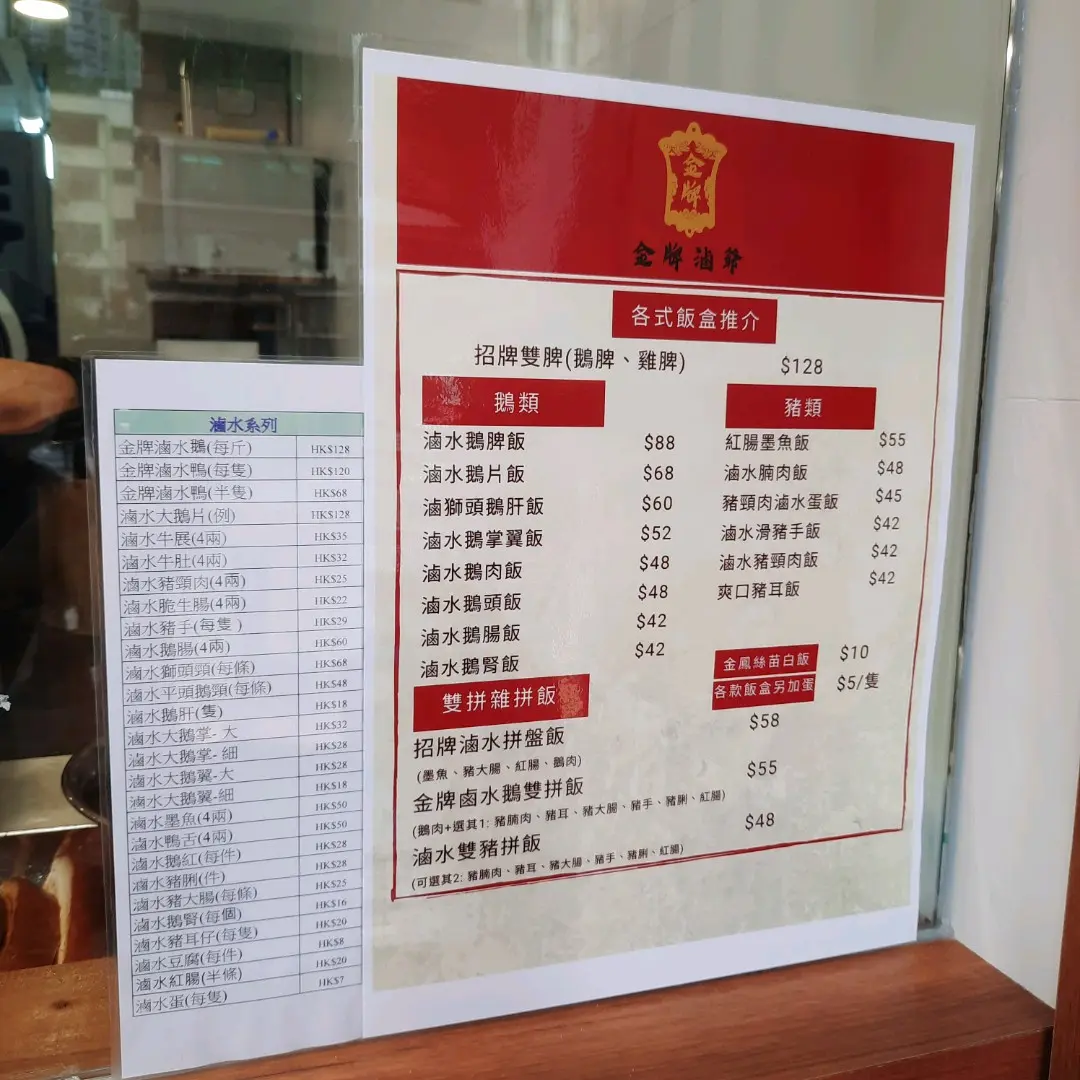 金牌
金牌滷爺
各式飯盒推介
招牌雙脾(鵝脾、雞脾) $128
鵝類
滷水鵝脾飯 $88
滷水鵝片飯 $68
滷獅頭鵝肝飯 $60
滷水鵝掌翼飯 $52
滷水鵝肉飯 $48
滷水鵝頭飯 $48
滷水鵝腸飯 $42
滷水鵝腎飯 $42
豬類
紅腸墨魚飯 $55
滷水腩肉飯 $48
豬頸肉滷水蛋飯 $45
滷水滑豬手飯 $42
滷水豬頸肉飯 $42
爽口豬耳飯 $42
金鳳絲苗白飯 $10
各款飯盒另加蛋 $5/隻
雙拼雜拼飯
招牌滷水拼盤飯 $58
(墨魚、豬大腸、紅腸、鵝肉)
金牌鹵水鵝雙拼飯 $55
(鵝肉+選其1: 豬腩肉、豬耳、豬大腸、豬手、豬脷、紅腸)
滷水雙豬拼飯 $48
(可選其2: 豬腩肉、豬耳、豬大腸、豬手、豬脷、紅腸)
滷水系列
金牌滷水鵝(每斤) HK$128
金牌滷水鴨(每隻) HK$120
金牌滷水鴨(半隻) HK$68
滷水大鵝片(例) HK$128
滷水牛展(4兩) HK$35
滷水牛肚(4兩) HK$32
滷水豬頸肉(4兩) HK$25
滷水脆生腸(4兩) HK$22
滷水豬手(每隻 ) HK$29
滷水鵝腸(4兩) HK$60
滷水獅頭頸(每條) HK$68
滷水平頭鵝頸(每條) HK$48
滷水鵝肝(隻) HK$18
滷水大鵝掌- 大 HK$32
滷水大鵝掌- 細 HK$28
滷水大鵝翼-大 HK$28
滷水大鵝翼-細 HK$18
滷水墨魚(4兩) HK$50
滷水鴨舌(4兩) HK$50
滷水鵝紅(每件) HK$28
滷水豬脷(件) HK$28
滷水豬大腸(每條) HK$25
滷水鵝腎(每個) HK$16
滷水豬耳仔(每隻) HK$20
滷水豆腐(每件) HK$8
滷水紅腸(半條) HK$20
滷水蛋(每隻) HK$7